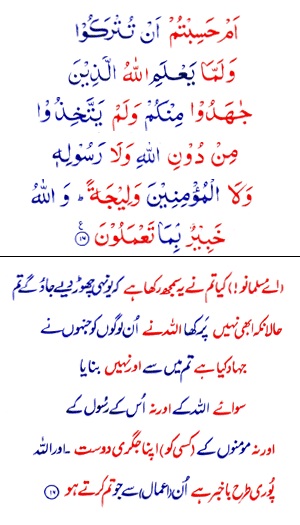 اَمْ حَسِبْتُمْ اَنْ تُتْرَكُوْا
وَلَمَّا يَعْلَمِ اللّٰهُ الَّذِيْنَ
جٰهَدُوْا مِنْكُمْ وَلَمْ يَتَّخِذُوْا
مِنْ دُوْنِ اللّٰهِ وَلَا رَسُوْلِهٖ
وَلَا الْمُؤْمِنِيْنَ وَلِيْجَةً ؕ وَ اللّٰهُ
خَبِيْرٌۢ بِمَا تَعْمَلُوْنَ ﴿۱۶﴾ ع
(اے مسلمانو!) کیا تم نے یہ سمجھ رکھا ہے کہ یونہی چھوڑ دیے جاؤ گے تم
حالانکہ ابھی نہیں پرکھا اللہ نے اُن لوگوں کو جنہوں نے
جہاد کیا ہے تم میں سے اور نہیں بنایا
سوائے اللہ کے اور نہ اُس کے رسُول کے
اور نہ مومنوں کے (کسی کو) اپنا جگری دوست ۔ اور اللہ
پُوری طرح باخبر ہے اُن (اعمال) سے جو تم کرتے ہو ﴿۱۶﴾